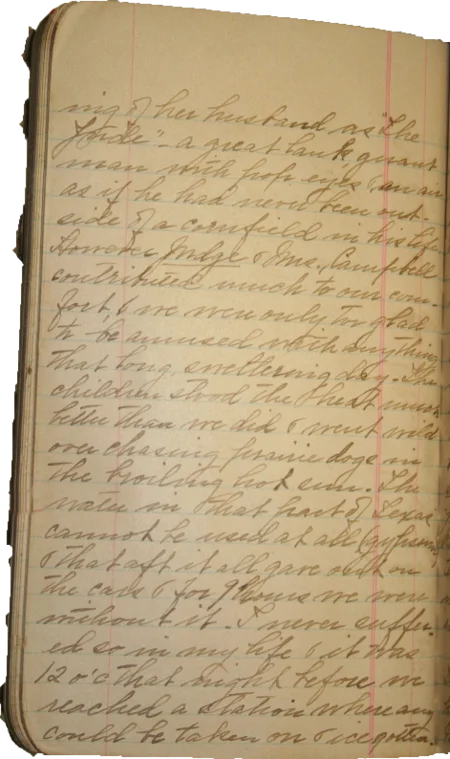 ing of her husband as "The
Judge" - a great lank gaunt
man with pop eyes & an air
as if he had never been out-
side of a cornfield in his life.
However Judge & Mrs. Campbell
contributed much to our com-
fort, & we were only too glad
to be amused with anything
that long, sweltering day. The
children stood the heat much
better than we did & went wild
over chasing prairie dogs in
the broiling hot sun. The
water in that part of Texas
cannot be used at all (gypsum)
& that aft it all gave out on
the cars & for 9 hours we were
without it. I never suffer-
ed so in my life & it was
12 o'c that night before we
reached a station where any
could be taken on & ice gotten.